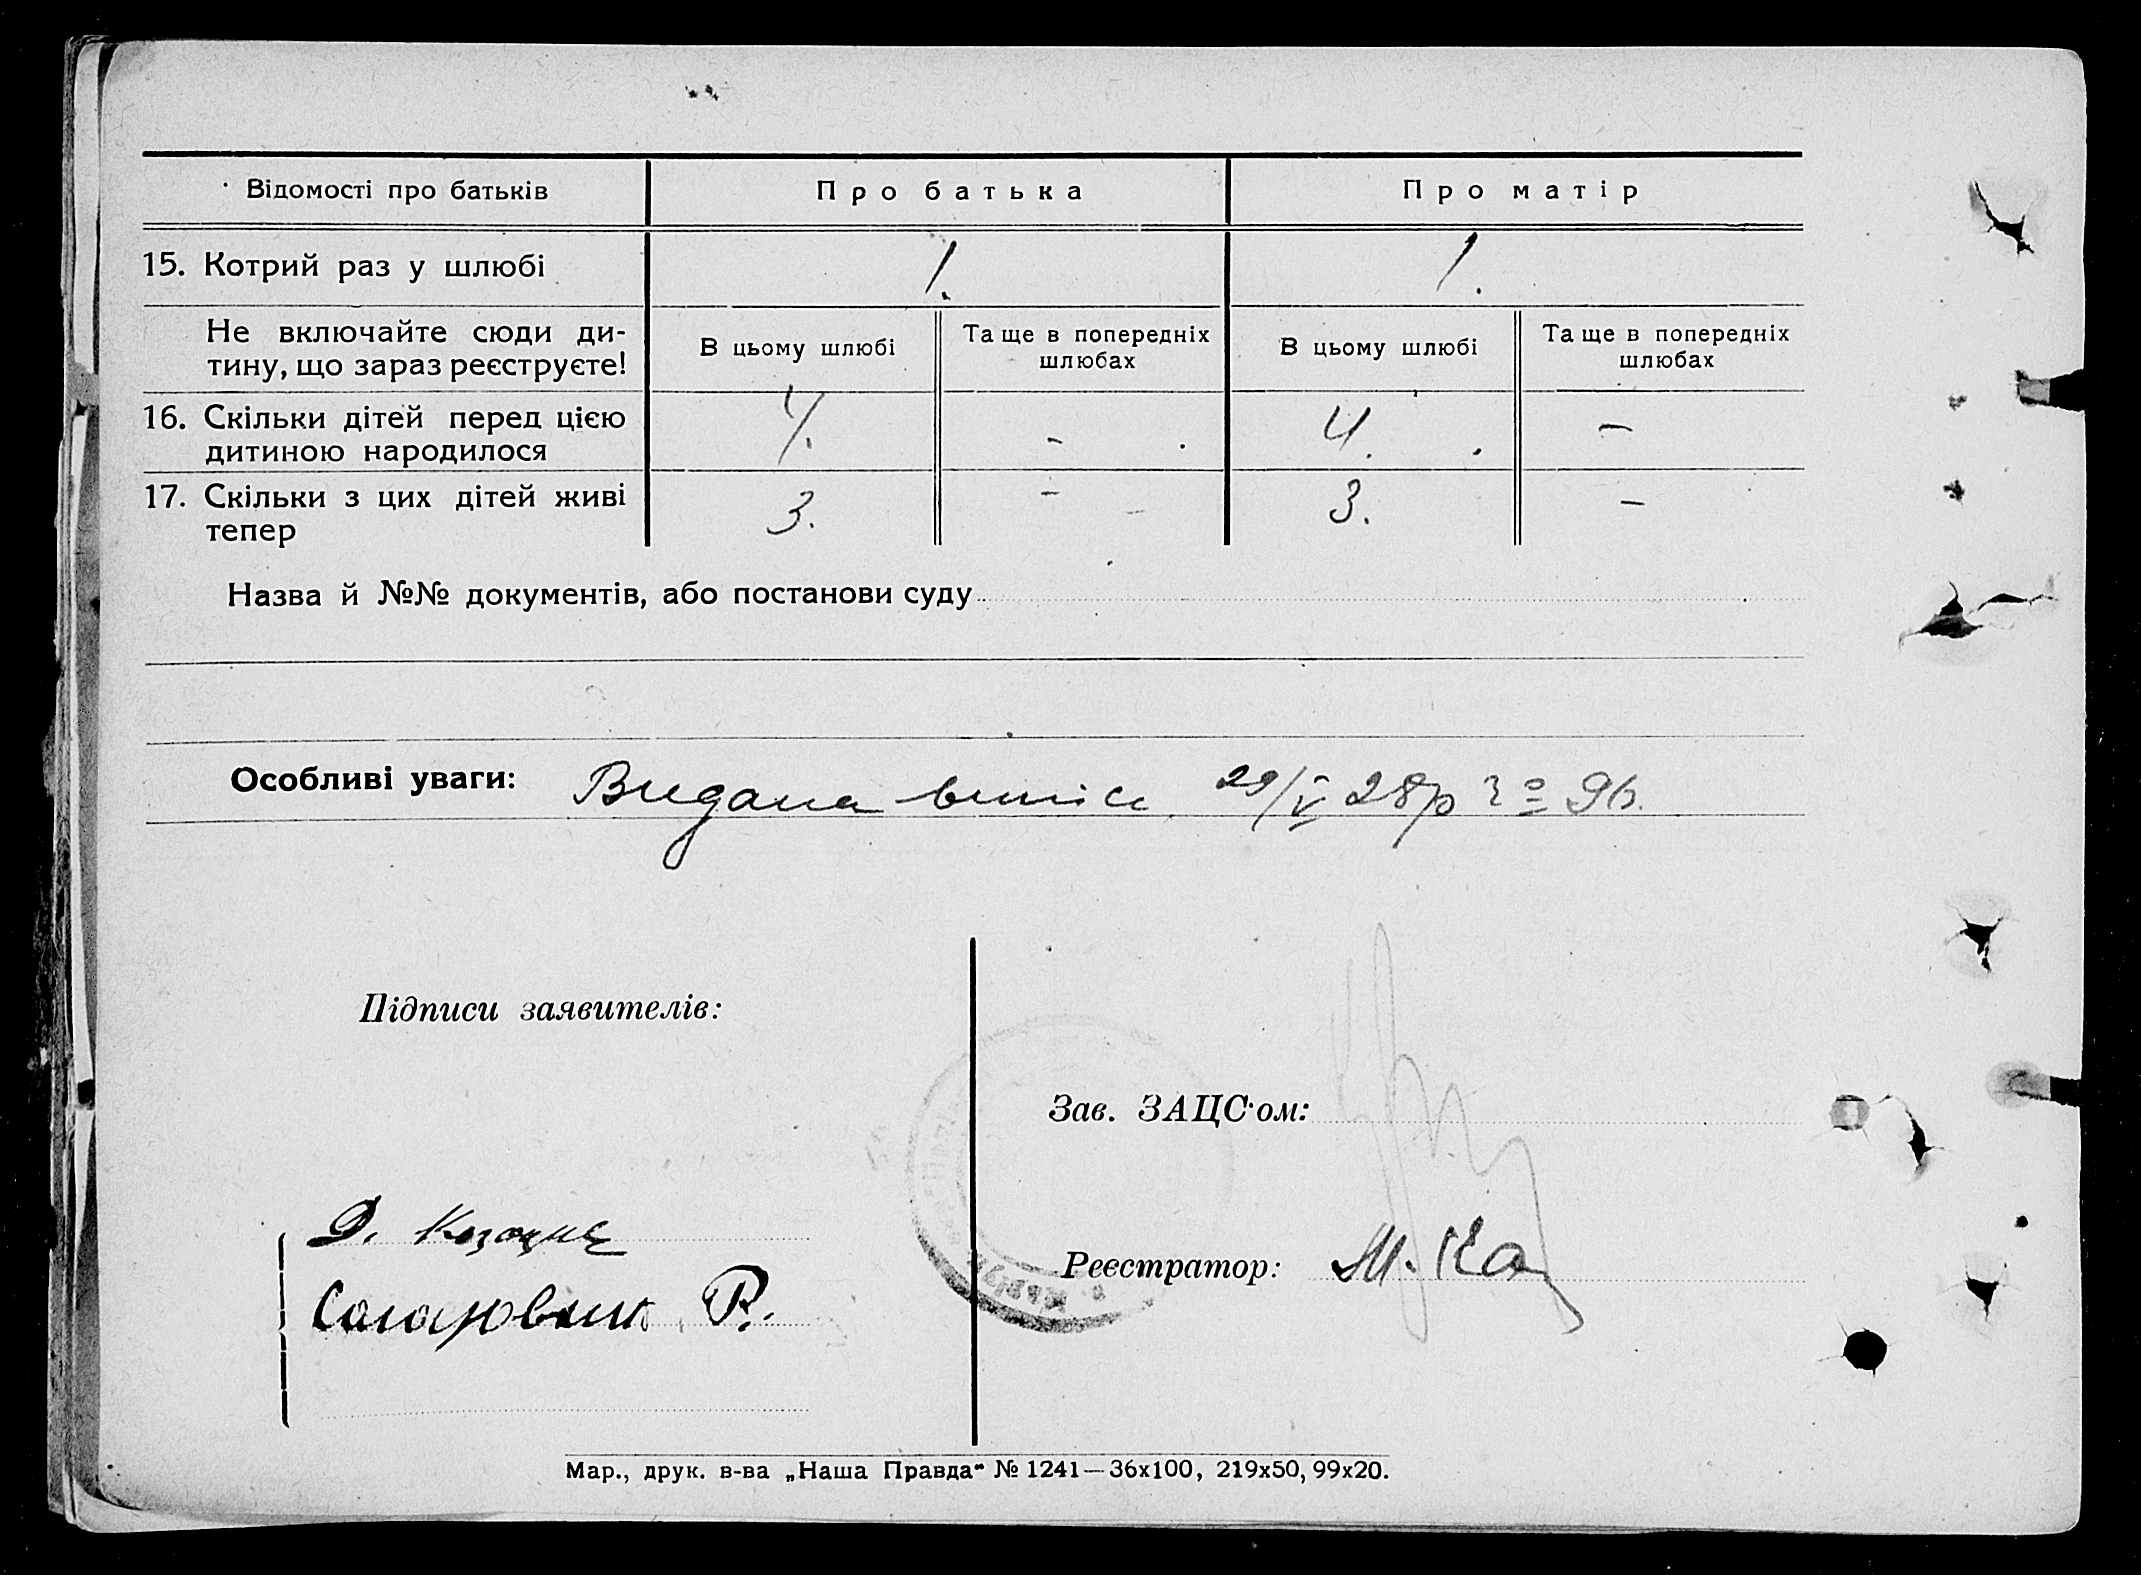 Відомості про батьків
Про батька
Про матір
15. Котрий раз у шлюбі
1.
1.
Не включайте сюди ди-
тину, що зараз реєструєте!
В цьому шлюбі
Та ще в попередніх
шлюбах
В цьому шлюбі
Та ще в попередніх
шлюбах
16. Скільки дітей перед цією
дитиною народилося
4.
-
4.
-
17. Скільки з цих дітей живі
тепер
3.
-
3.
-
Назва й №№ документів, або постанови суду
Особливі уваги: Видана 29/V 28р
Підписи заявителів:
Зав. ЗАЦС'ом:
Д.
Реєстратор: М.
Р.
Мар., друк. в-ва „Наша Правда“ № 1241—36х100, 219х50, 99х20.